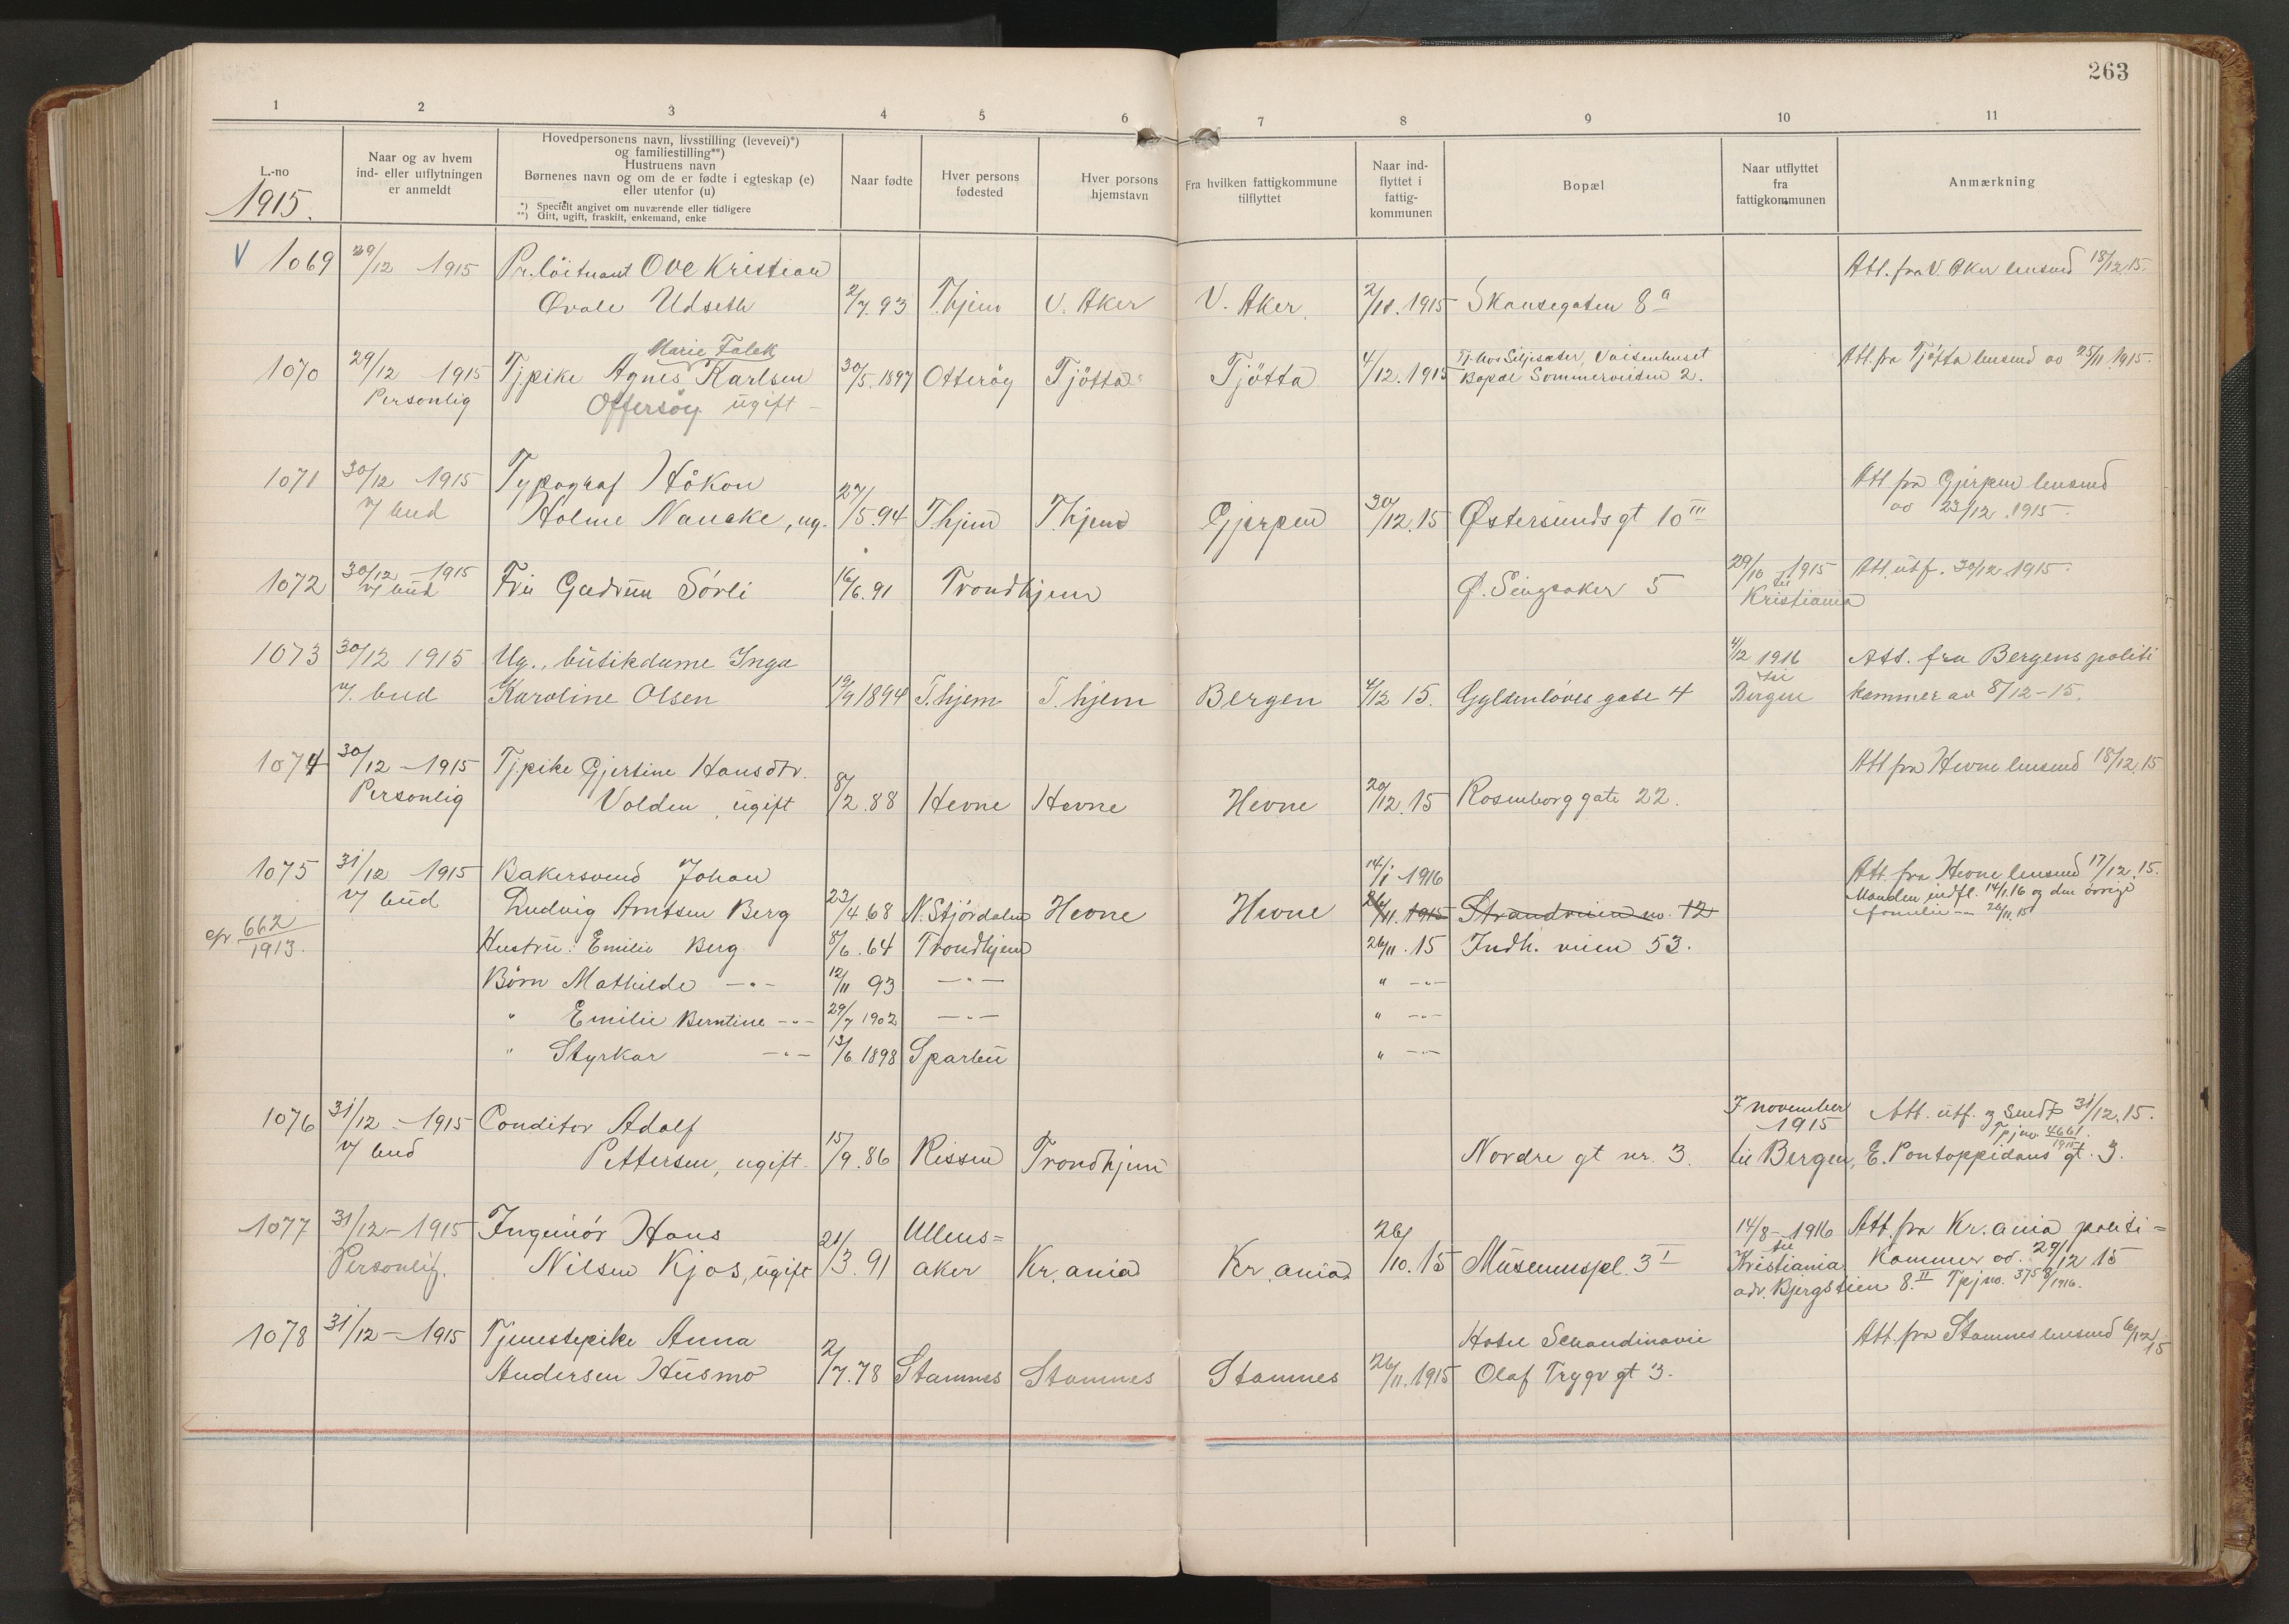 263
1 2 3 4 5 6 7 8 9 10 11
L.-no
1915.
Naar og av hvem
ind- eller utflytningen
er anmeldt
Hovedpersonens navn, livsstilling (levevei)*)
og familiestilling**)
Hustruens navn
Børnenes navn og om de er fødte i egteskap (e)
eller utenfor (u)
*) Specielt angivet om nuværende eller tidligere
**) Gift, ugift, fraskilt, enkemand, enke
Naar fødte
Hver persons
fødested
Hver porsons
hjemstavn
Fra hvilken fattigkommune
tilflyttet
Naar ind-
flyttet i
fattig-
kommunen
Bopæl
Naar utflyttet
fra
fattigkommunen
Anmærkning
V 1069 29/12 1915 Pr. löitnant Ove Kristian Att. fra V. Aker lensmd 18/12.15.
Øvale Udseth 2/7.93 T.hjem V. Aker V. Aker. 2/10.1915 Skansegaten 8a
Marie Falek
1070 29/12 1915 Tj.pike Agnes Karlsen 30/5.1897 Otteröy Tjötta Tjötta 4/12.1915 Tj. hos Siljesæter, Vaisenhuset Att. fra Tjötta lensmd av 25/11.1915.
Personlig Offersöy ugift Bopæl Sommerveiten 2.
1071 30/12 1915 Typograf Håkon Att fra Gjerpen lensmd
v/ bud Holme Nauske, ug. 27/5.94 T.hjem T.hjem Gjerpen 30/12.15 Østersunds gt 10 III av 23/12.1915
1072 30/12 - 1915 Fru Gudrun Sörli 16/6.91 Trondhjem Ø. Singsaker 5 29/10 - 1915 Att. utf. 30/12.1915.
v/ bud til
Kristiania
1073 30/12 1915 Ug., butikdame Inga 4/12 1916 Att. fra Bergens politi
v/. bud Karoline Olsen 19/9 1894 T.hjem T.hjem Bergen 4/12 15. Gyldenlöves gate 4 til Bergen kammer av 8/12-15.
1074 30/12 - 1915 Tj.pike Gjertine Hansdtr. Att fra Hevne lensmd 18/12.15
Personlig Volden, ugift 8/2.88 Hevne Hevne Hevne 20/12.15 Rosenborg gate 22.
1075 31/12 1915 Bakersvend Johan 14/1 1916 Att. fra Hevne lensmd 17/12.15.
v/ bud Ludvig Arntsen Berg 23/4 68 N. Stjördalen Hevne Hevne 26/11.1915 Strandveien no. 12 Manden indfl. 14/1.16 og den övrige
familie -"- 26/11.15
cfr 662/1913. Hustru: Emilie Berg 8/6.64 Trondhjem 26/11.15 Indh. veien 53.
Börn Mathilde -"- 12/11 93 -"- " -"-
" Emilie Berntine -"- 29/7 1902 -"- " -"-
" Styrkar -"- 13/6 1898 Sparbu " -"-
1076 31/12 - 1915 Conditor Adolf I november Att. utf. og sendt 31/12.15.
1915 Tpj no. 4661/1915.
v/ bud Pettersen, ugift. 15/9.86 Rissen Trondhjem Nordre gt nr. 3. til Bergen, E. Pontoppidans gt. 3.
1077 31/12 - 1915 Ingeniör Hans Ullens= 26/ 14/8 - 1916 Att. fra Kr.ania politi=
Personlig. Nilsen Kjos, ugift 21/3.91 aker Kr.ania Kr.ania 10.15 Museumspl. 3 I til Kristiania kammer av. 29/12 15
adr. Bjergstien 8. II Tpj no. 3758/1916.
1078 31/12 - 1915 Tjenestepike Anna Hotel Scandinavie Att. fra Stamnes lensmd 6/12 15
Andersen Husmo 2/7.78 Stamnes Stamnes Stamnes 26/11.1915 Olaf Trygv gt 3.